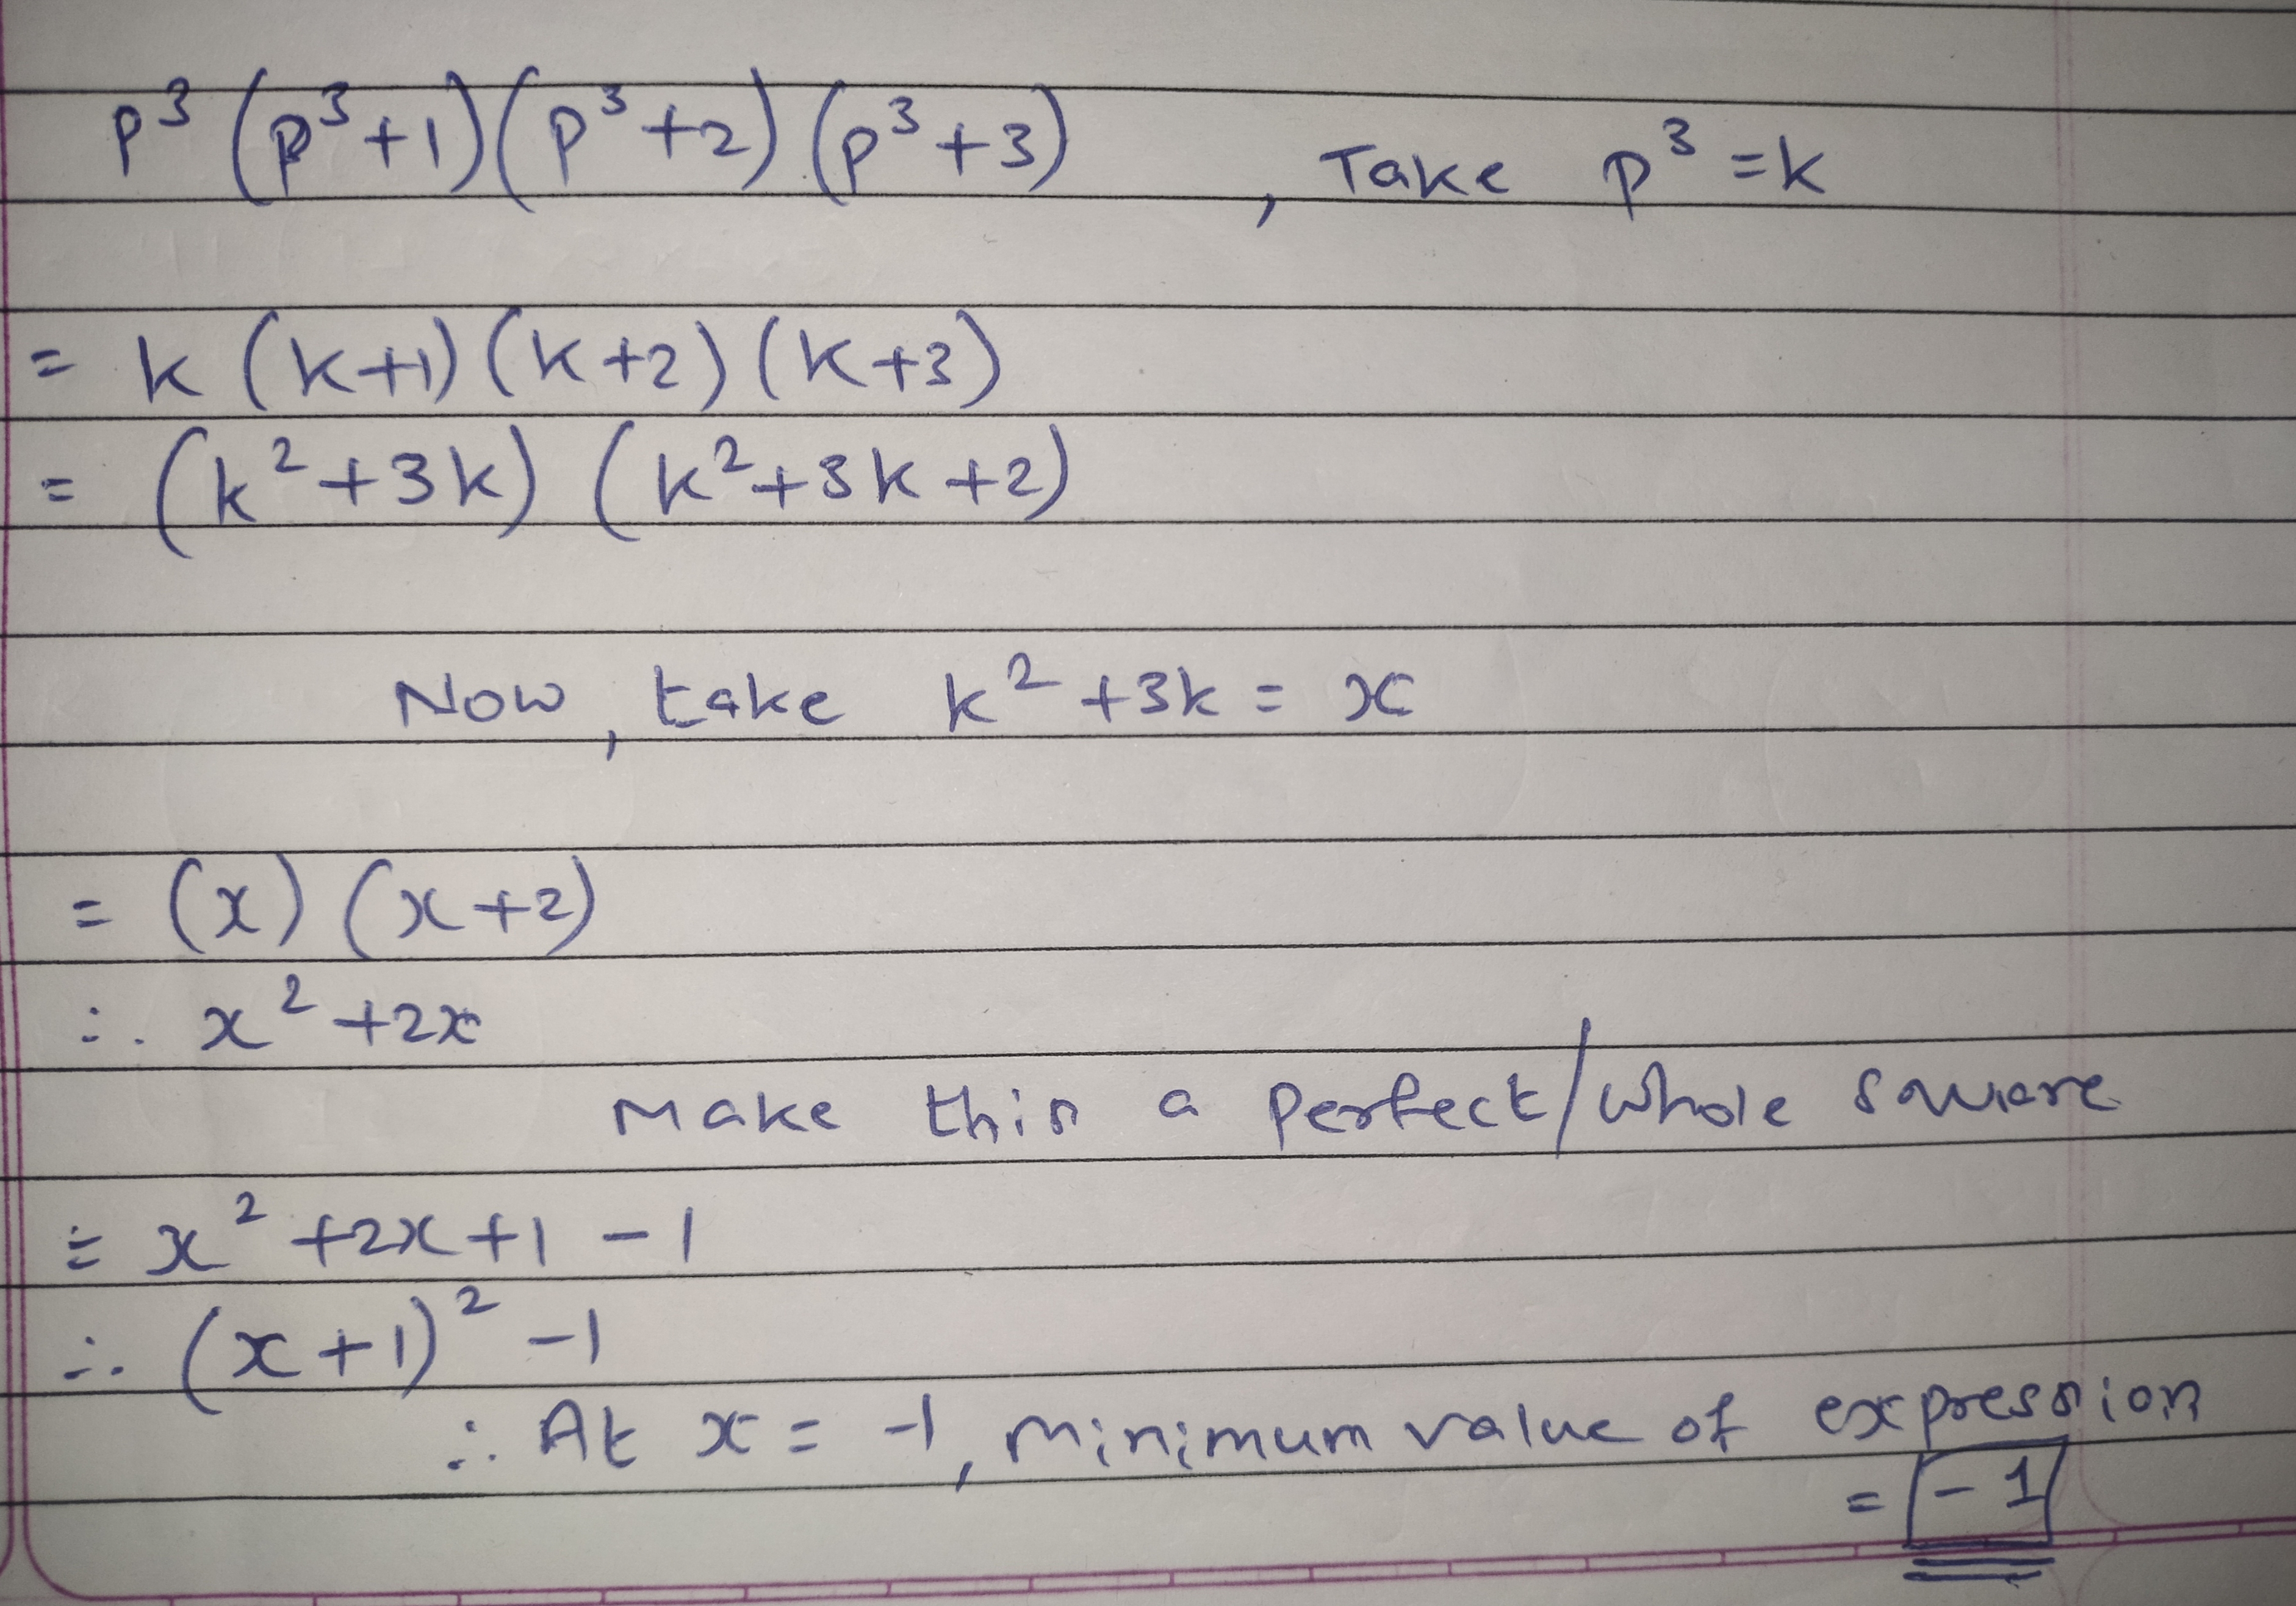 p³ (p³+1)(p³+2)(p³+3) , Take p³ =k
= k (k+1)(k+2)(k+3)
= (k²+3k) (k²+3k+2)
Now, take k²+3k = x
= (x) (x+2)
∴ x²+2x
Make this a perfect/whole square
= x²+2x+1 -1
∴ (x+1)² -1
∴ At x = -1, minimum value of expression
= -1